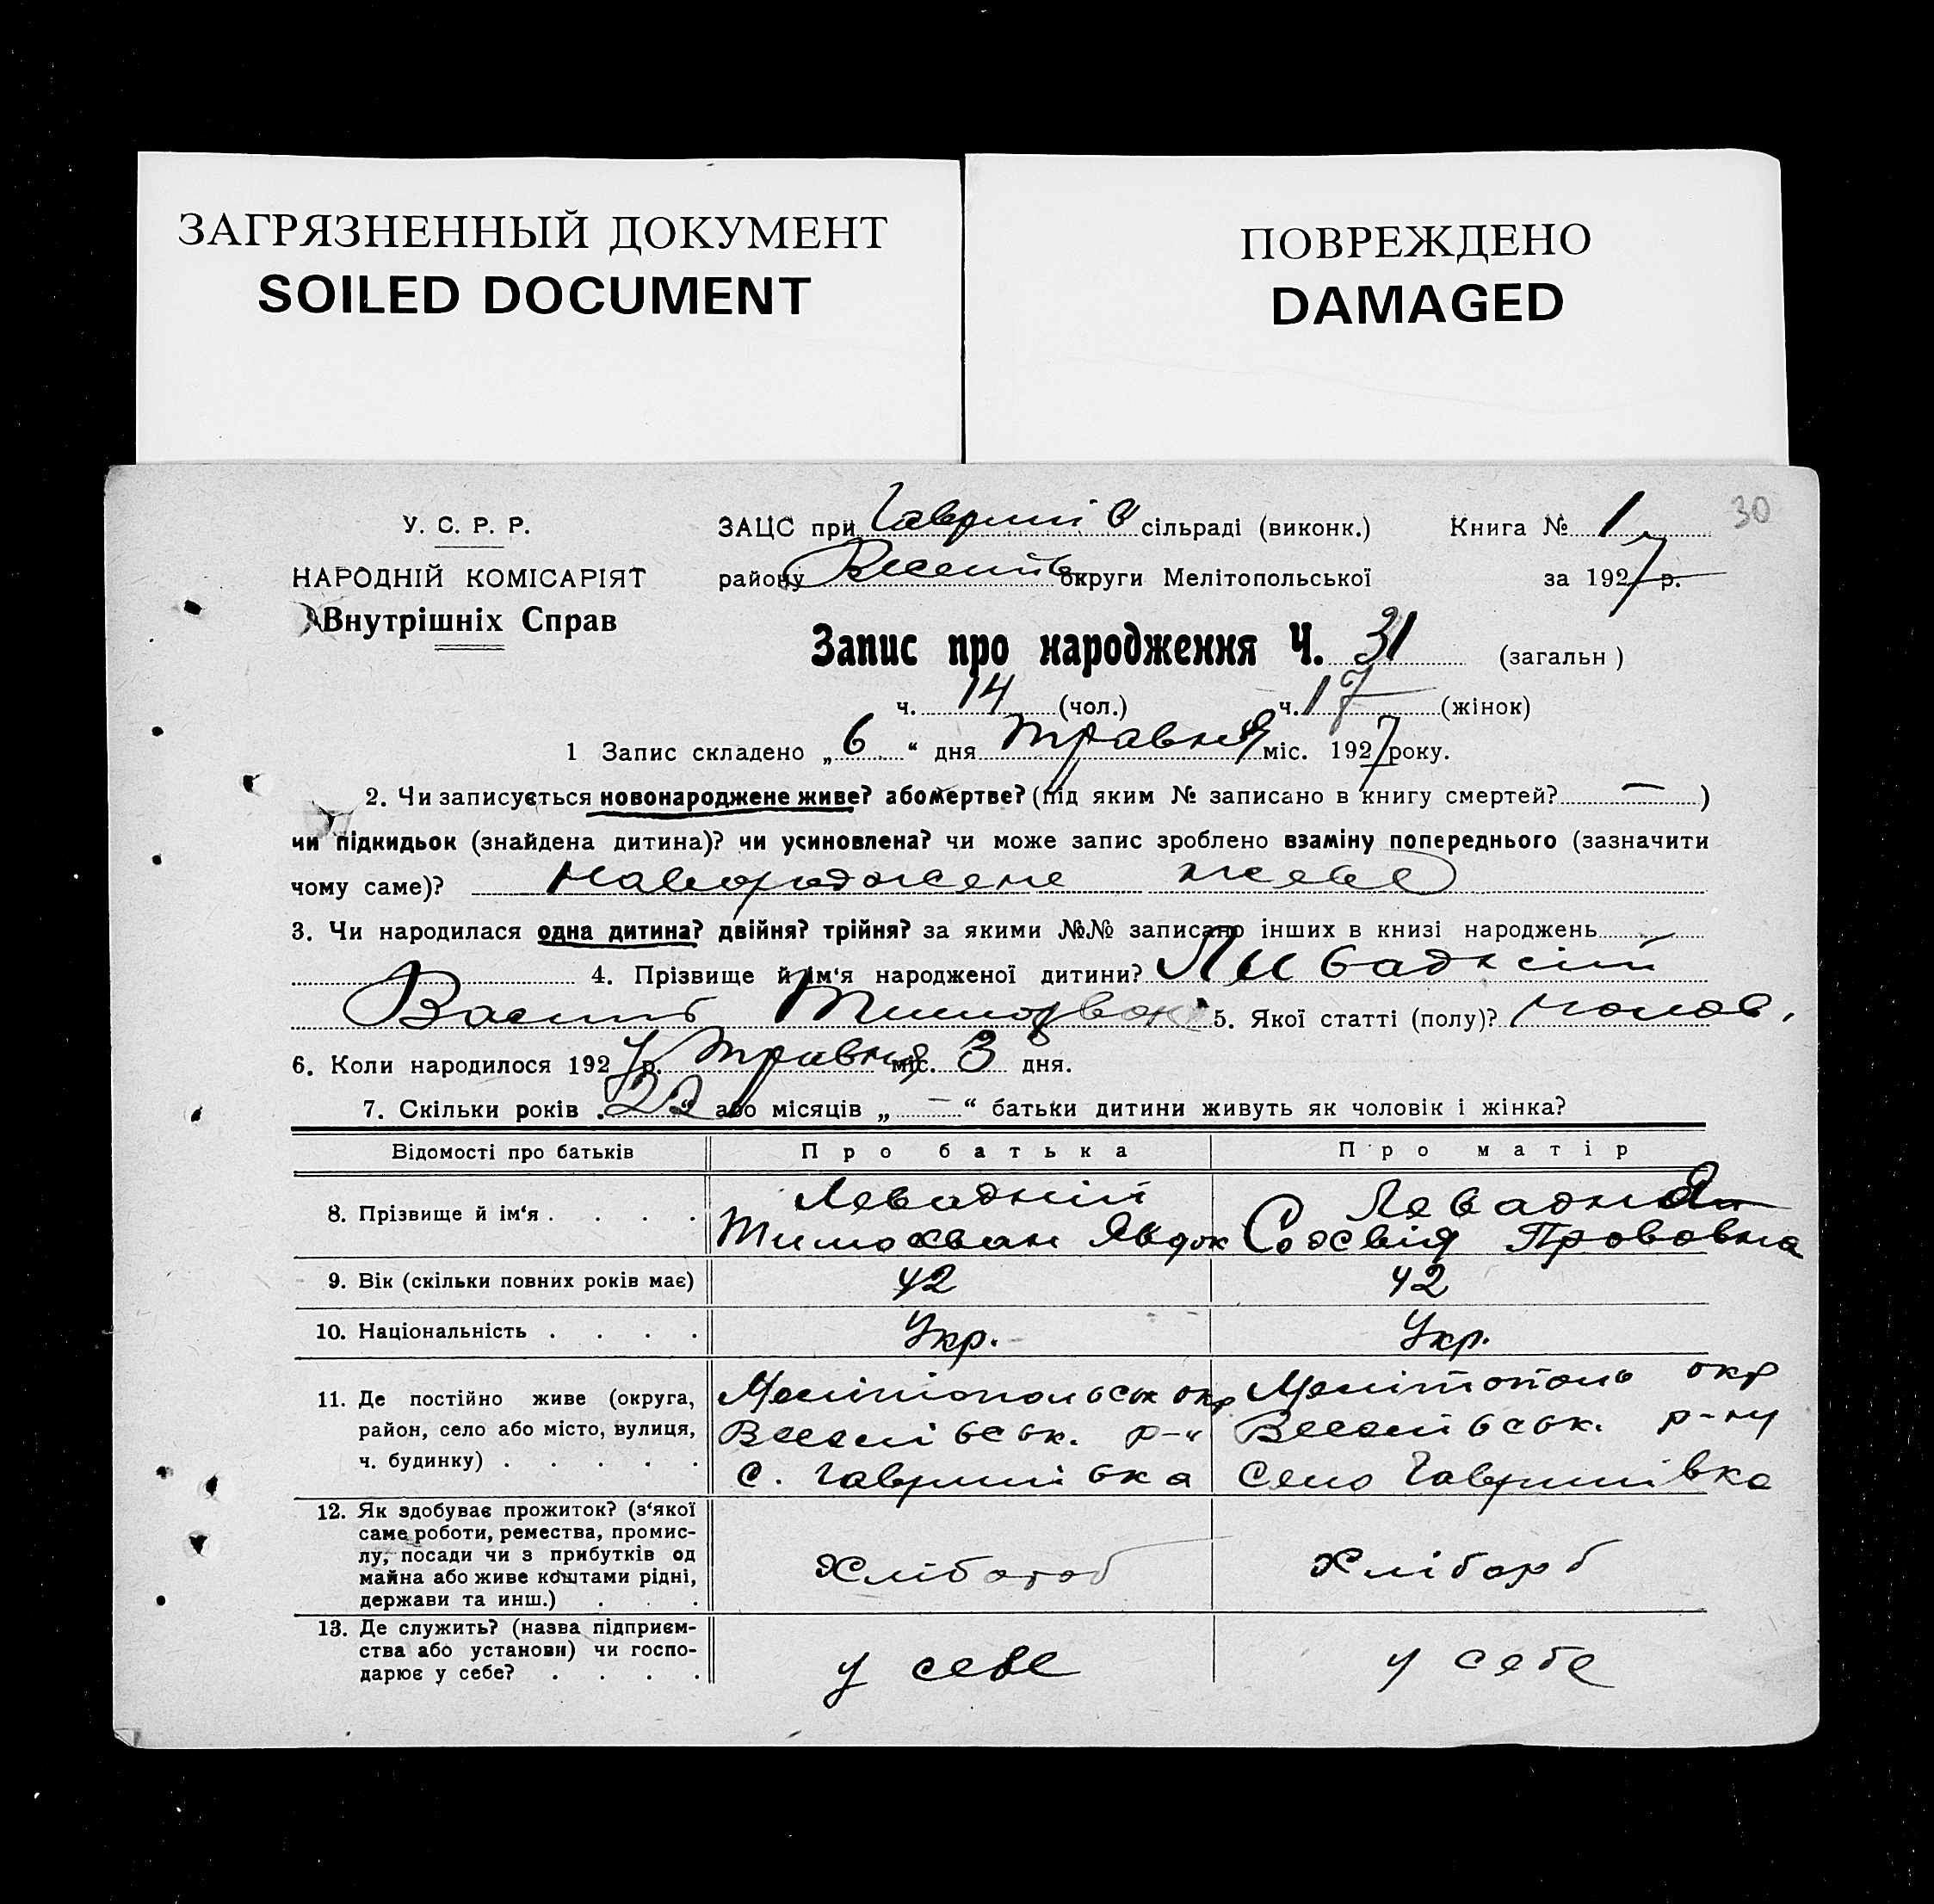 ЗАГРЯЗНЕННЫЙ ДОКУМЕНТ
SOILED DOCUMENT
ПОВРЕЖДЕНО
DAMAGED
30
У. С. Р. Р.
НАРОДНІЙ КОМІСАРІЯТ
Внутрішніх Справ
ЗАЦС при Гаврилів сільраді (виконк.) Книга № 1
району Веселів округи Мелітопольської за 1927 р.
Запис про народження Ч. 31 (загальн)
ч. 14 (чол.) ч. 17 (жінок)
1 Запис складено „6“ дня травня міс. 1927 року.
2. Чи записується новонароджене живе? або мертве? (під яким № записано в книгу смертей? — )
чи підкидьок (знайдена дитина)? чи усиновлена? чи може запис зроблено взаміну попереднього (зазначити
чому саме)? живе
3. Чи народилася одна дитина? двійня? трійня? за якими №№ записано інших в книзі народжень
4. Прізвище й ім‘я народженої дитини? Ливадній
Василь 5. Якої статті (полу)? чолов.
6. Коли народилося 1927 р. травня міс. 3 дня.
7. Скільки років „22“ або місяців „ — “ батьки дитини живуть як чоловік і жінка?
Відомості про батьків Про батька Про матір
8. Прізвище й ім‘я . . . . Левадній Левадня
Явдок Прововна
9. Вік (скільки повних років має) 42 42
10. Національність . . . . Укр. Укр.
11. Де постійно живе (округа, Мелітопольськ окр Мелітополь окр
район, село або місто, вулиця, Веселівськ. р-н Веселівськ. р-ну
ч. будинку) . . . . . с. Гаврилівка село Гаврилівка
12. Як здобуває прожиток? (з‘якої
саме роботи, ремества, промис-
лу, посади чи з прибутків од
майна або живе коштами рідні, Хлібороб Хліборб
держави та инш.) . . .
13. Де служить? (назва підприєм-
ства або установи) чи госпо-
дарює у себе? . . . . у себе у себе